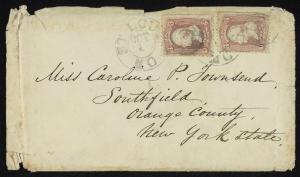 ST. LOUIS
MO.
Miss Caroline P. Townsend,
Southfield,
Orange County,
New York State.